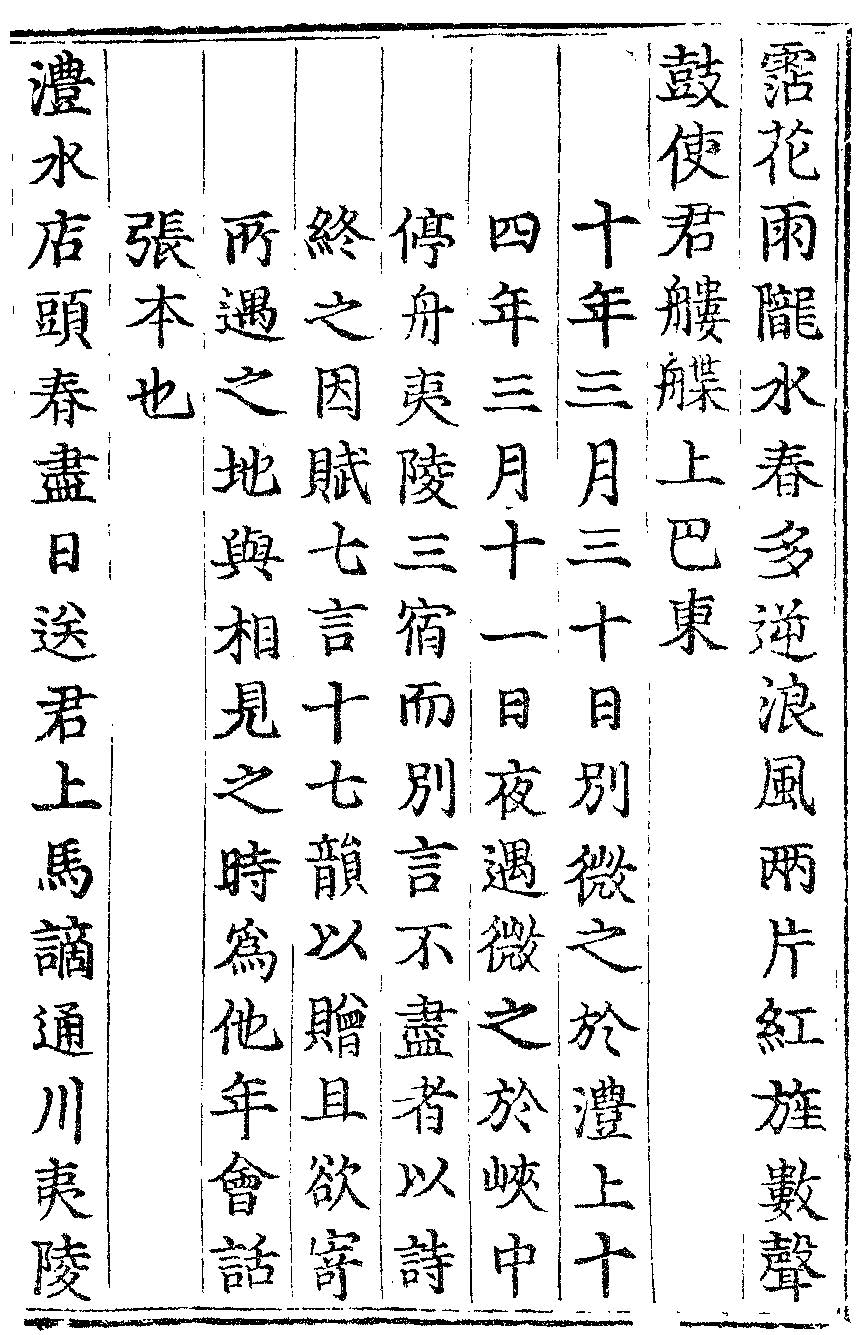 霑花雨隴水春多逆浪風兩片紅旌數聲
鼓使君艛艓上巴東
十年三月三十日別微之於澧上十
四年三月十一日夜遇微之於峽中
停舟夷陵三宿而別言不盡者以詩
終之因賦七言十七韻以贈且欲寄
所遇之地與相見之時爲他年會話
張本也
澧水店頭春盡日送君上馬謫通川夷陵